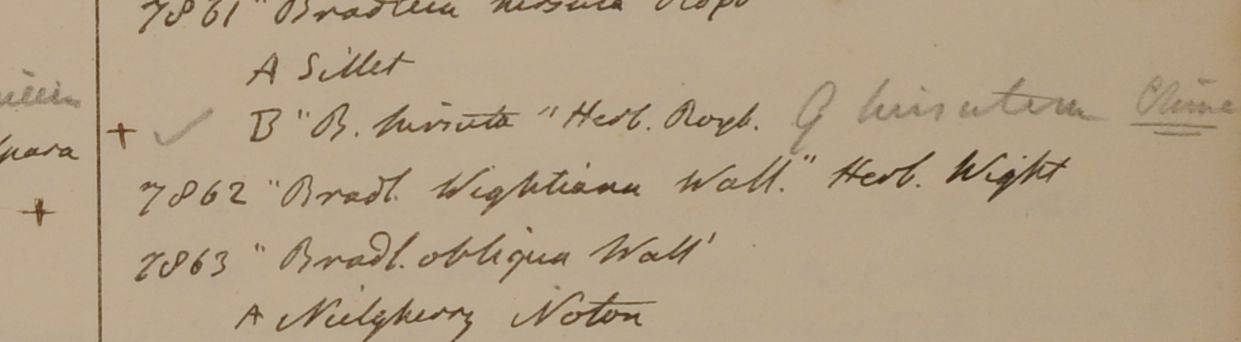 7861 "Bradleia hirsuta Roxb
A Sillet
+ ✓ B "B. hirsuta" Herb. Roxb. G hirsutum China
7862 "Bradl. Wightiana Wall." Herb. Wight
+
7863 "Bradl. obliqua Wall'
A Neelgherry Noton